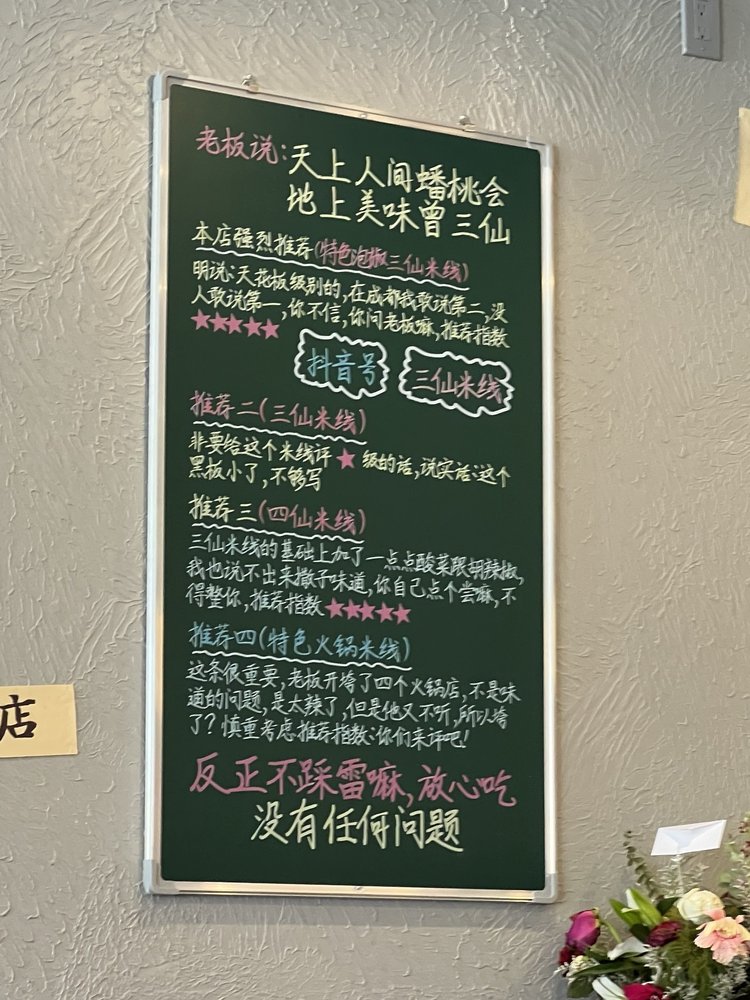 老板说:天上人间蟠桃会
地上美味曾三仙
本店强烈推荐(特色泡椒三仙米线)
明说:天花板级别的,在成都我敢说第二,没
人敢说第一,你不信,你问老板嘛,推荐指数
★★★★★
抖音号 三仙米线
推荐二(三仙米线)
非要给这个米线评★级的话,说实话:这个
黑板小了,不够写
推荐三(四仙米线)
三仙米线的基础上加了一点点酸菜跟胡辣椒,
我也说不出来撒子味道,你自己点个尝嘛,不
得整你,推荐指数★★★★★
推荐四(特色火锅米线)
这条很重要,老板开垮了四个火锅店,不是味
道的问题,是太辣了,但是他又不听,所以垮
了?慎重考虑推荐指数:你们来评吧!
反正不踩雷嘛,放心吃
没有任何问题
店